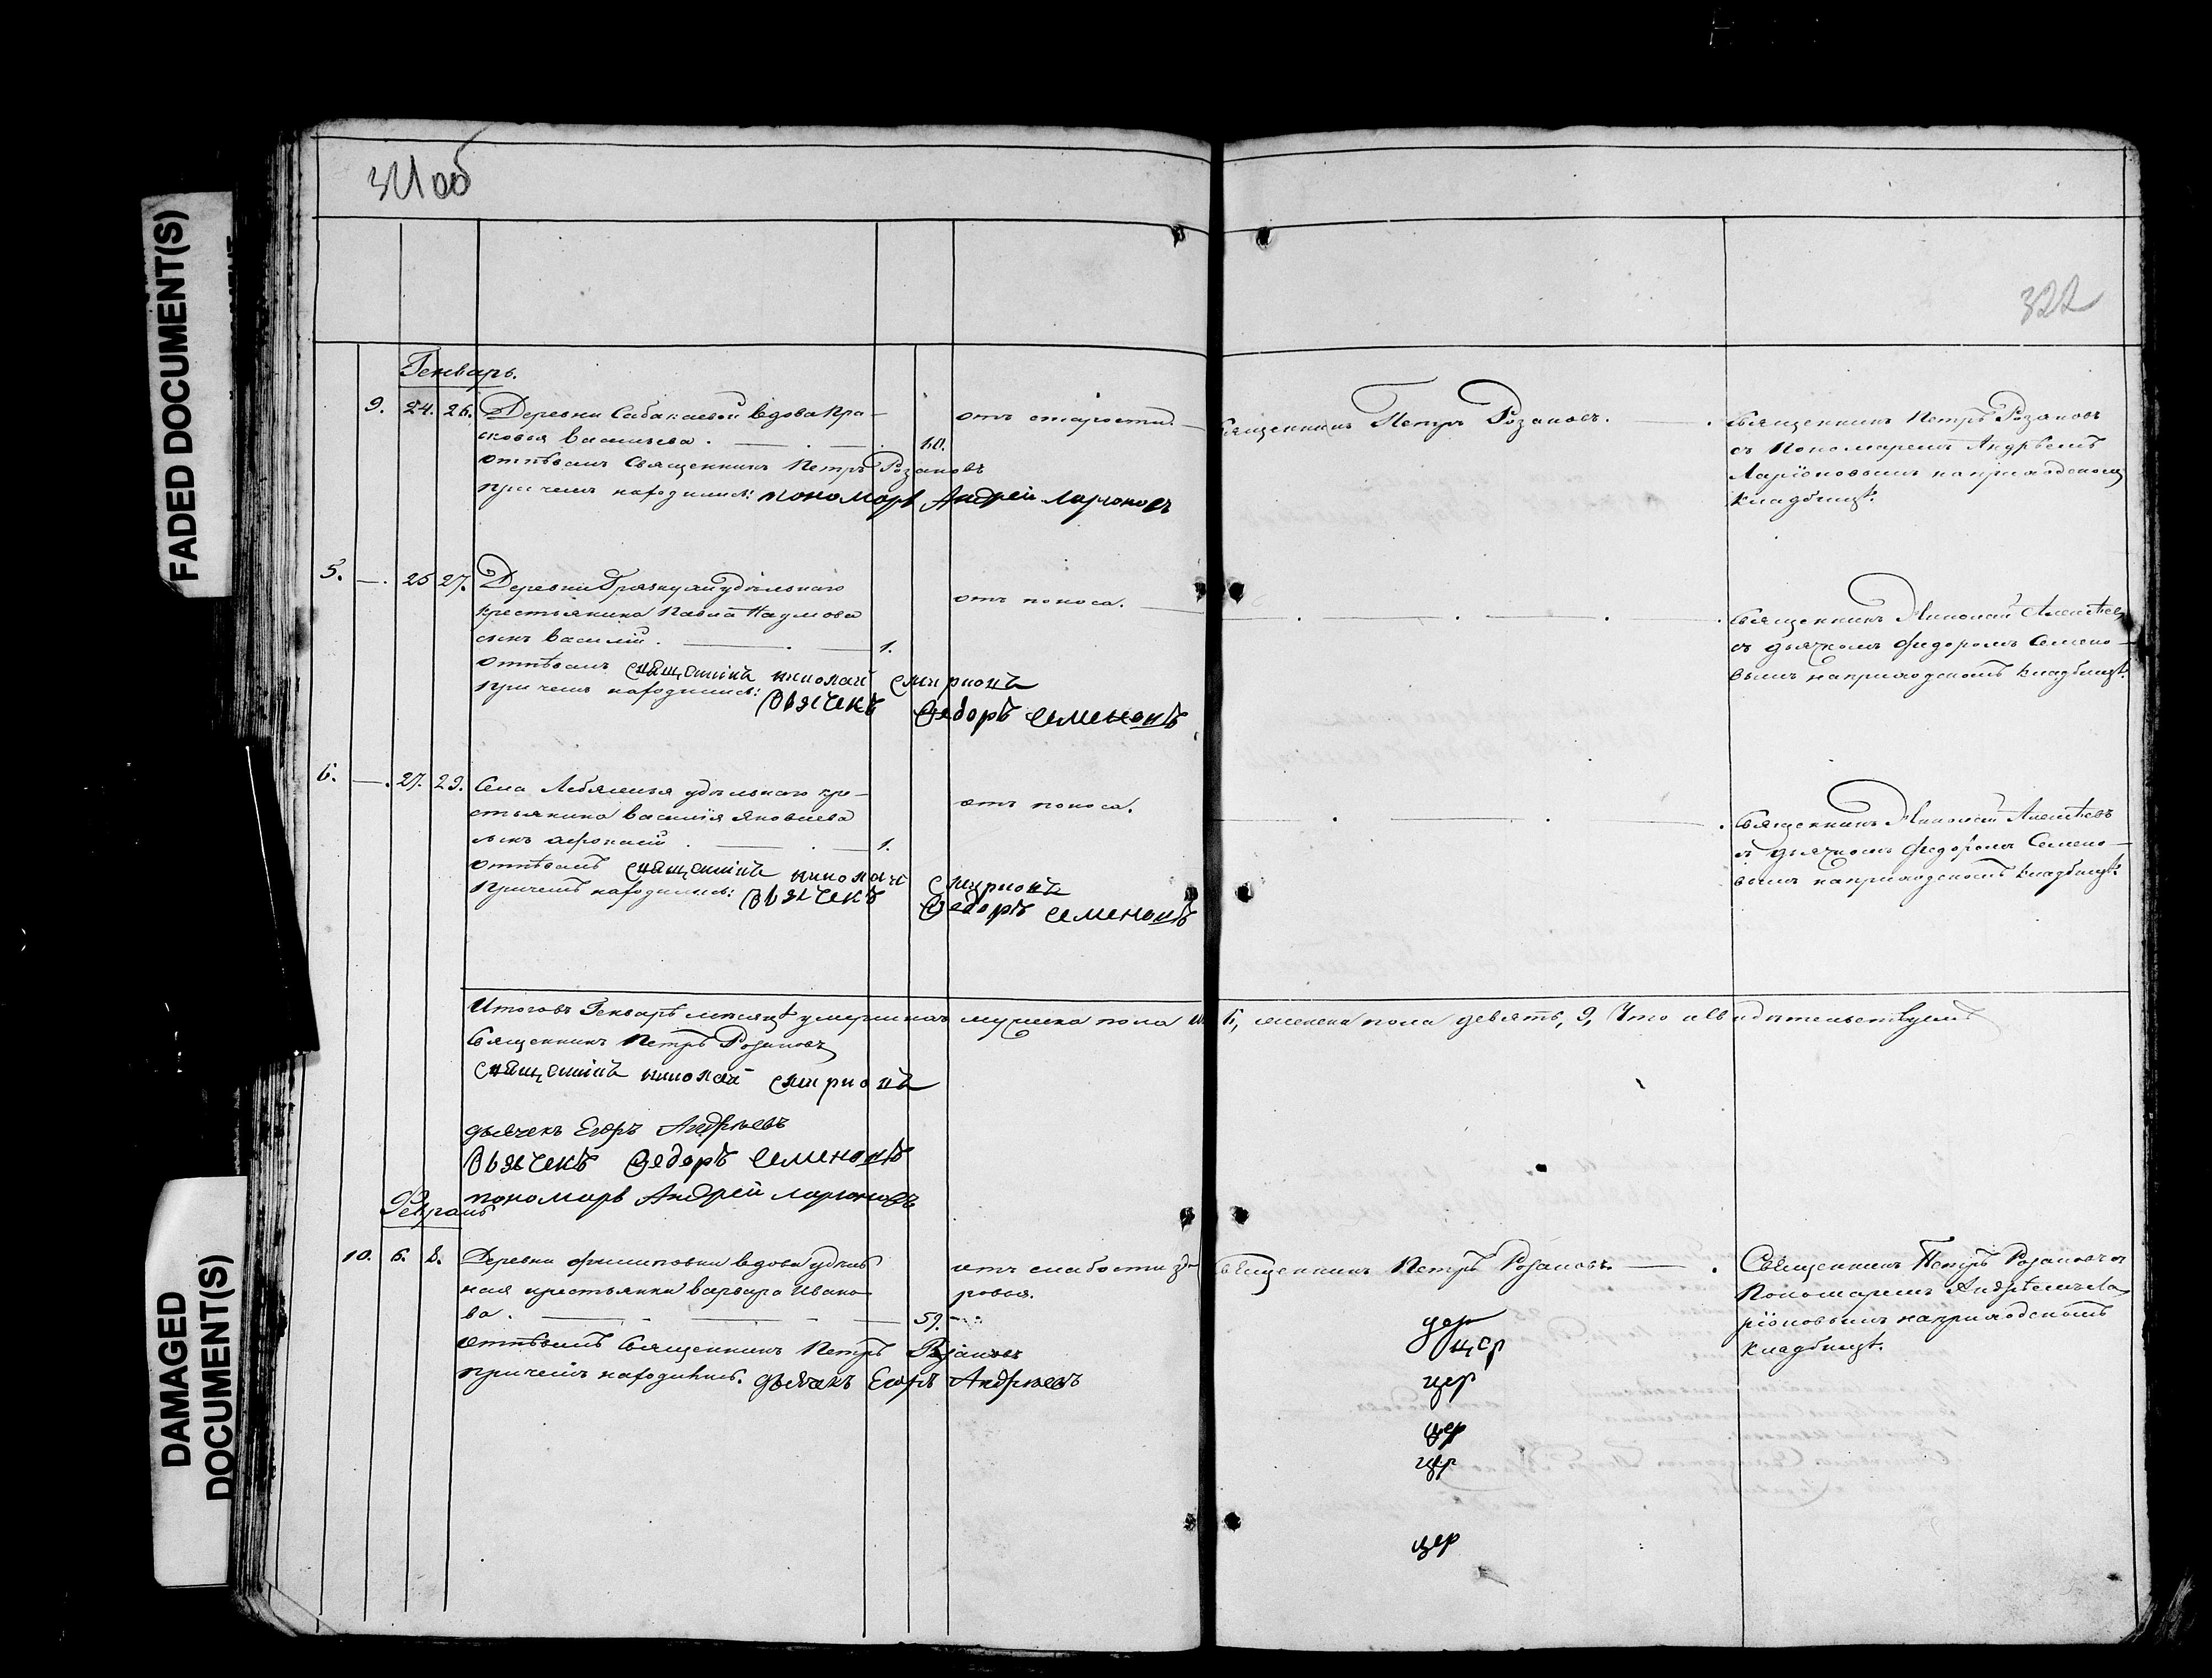 FADED DOCUMENT(S)
DAMAGED
DOCUMENT(S)
321 об
322
Генварь.
9. 24. 26. Деревни Сабакаевой вдова Пра-
сковья Васильева. 60. отъ старости.
Священникъ Петръ Розановъ.
Священникъ Петръ Розановъ
съ Пономаремъ Андрѣемъ
Ларіоновымъ на приходскомъ
кладбищѣ.
Отпѣвалъ Священникъ Петръ Розановъ
При чемъ находились: пономарь Андрей Ларионовъ
5. — 25 27. Деревни удѣльнаго
крестьянина Павла Наумова
сынъ Василій. 1. отъ поноса.
Священникъ Николай Алексѣевъ
съ дьячкомъ Федоромъ Семено-
вымъ на приходскомъ кладбищѣ.
Отпѣвалъ священикъ николай смирновъ
При чемъ находились: дьячекъ Ѳедоръ Семеновъ
6. — 27. 29. Села Лебяжья удѣльнаго кре-
стьянина Василія Яковлева
сынъ Афонасій. 1. отъ поноса.
Священникъ Николай Алексѣевъ
съ дьячкомъ Федоромъ Семено-
вымъ на приходскомъ кладбищѣ.
Отпѣвалъ священикъ николай смирновъ
При чемъ находились: дьячекъ Ѳедоръ Семеновъ
Итого въ Генварѣ мѣсяцѣ умершихъ мужска пола 6, женска пола девять, 9, Что и свидѣтельствуемъ
Священникъ Петръ Розановъ
священикъ николай смирновъ
дьячекъ Егоръ Андреевъ
дьячекъ Ѳедоръ Семеновъ
пономарь Андрей Ларионовъ
Февраль
10. 6. 8. Деревни Филиповки вдова удѣль
ная крестьянка Варвара Ивано-
ва. 59. отъ слабости здо
ровья.
Священникъ Петръ Розановъ.
Священникъ Петръ Розановъ съ
Пономаремъ Андрѣемъ Ла
ріоновымъ на приходскомъ
кладбищѣ.
Отпѣвалъ Священникъ Петръ Розановъ
При чемъ находились: дьячекъ Егоръ Андреевъ
цер
цер
цер
цер
цер
цер